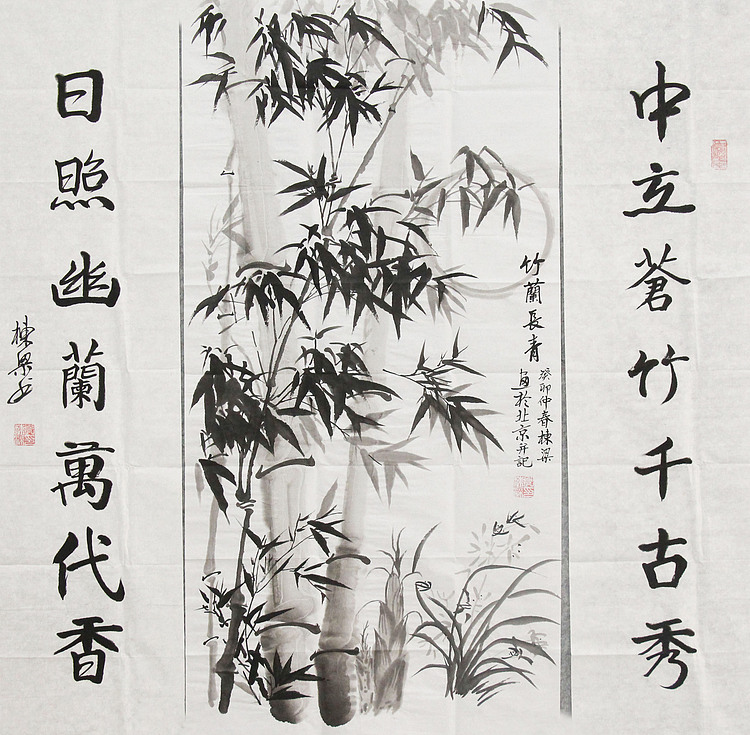 中立蒼竹千古秀
竹蘭長青
癸卯仲春棟梁
畫於北京并記
日照幽蘭萬代香
棟梁書